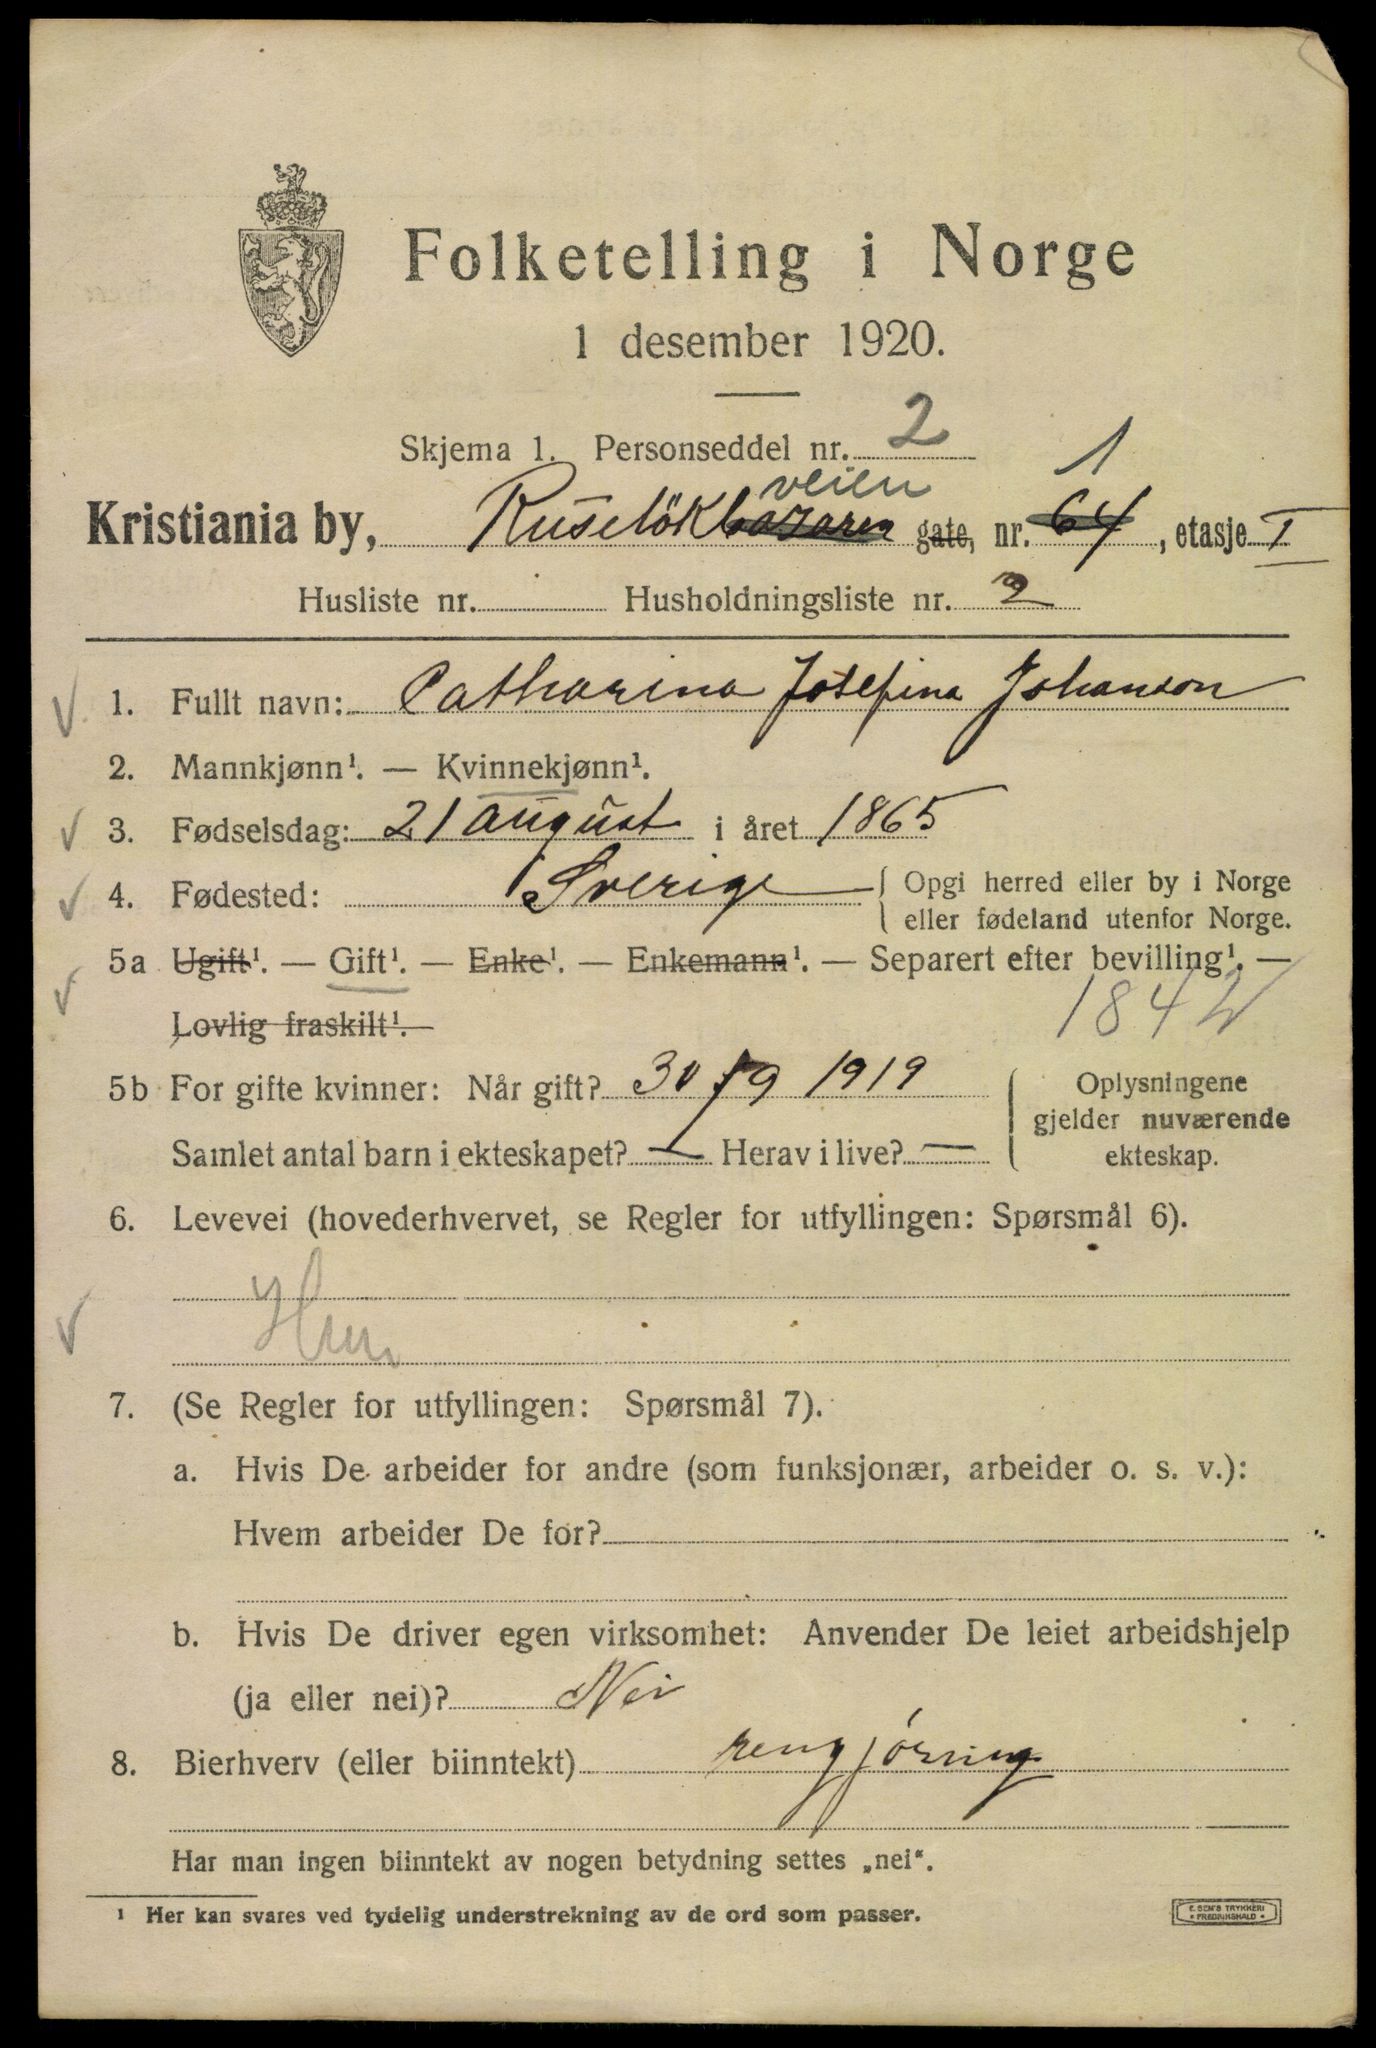 Folketelling i Norge
1 desember 1920.
Skjema 1. Personseddel nr. 2
veien 1
Kristiania by, Ruseløkbazaren gate, nr. 64, etasje I
Husliste nr. Husholdningsliste nr. 2
1. Fullt navn: Catharina Josefina Johanson
2. Mannkjønn¹. — Kvinnekjønn¹.
3. Fødselsdag: 21 august i året 1865
4. Fødested: Sverige { Opgi herred eller by i Norge
eller fødeland utenfor Norge.
5a Ugift¹. — Gift¹. — Enke¹. — Enkemann¹. — Separert efter bevilling¹. —
Lovlig fraskilt¹. — 184
5b For gifte kvinner: Når gift? 30/9 1919 Oplysningene
gjelder nuværende
Samlet antal barn i ekteskapet? — Herav i live? — ekteskap.
6. Levevei (hovederhvervet, se Regler for utfyllingen: Spørsmål 6).
7. (Se Regler for utfyllingen: Spørsmål 7).
a. Hvis De arbeider for andre (som funksjonær, arbeider o. s. v.):
Hvem arbeider De for?
b. Hvis De driver egen virksomhet: Anvender De leiet arbeidshjelp
(ja eller nei)? Nei
8. Bierhverv (eller biinntekt) rengjøring
Har man ingen biinntekt av nogen betydning settes „nei“.
¹ Her kan svares ved tydelig understrekning av de ord som passer.
E. SEM'S TRYKKERI
FREDRIKSHALD